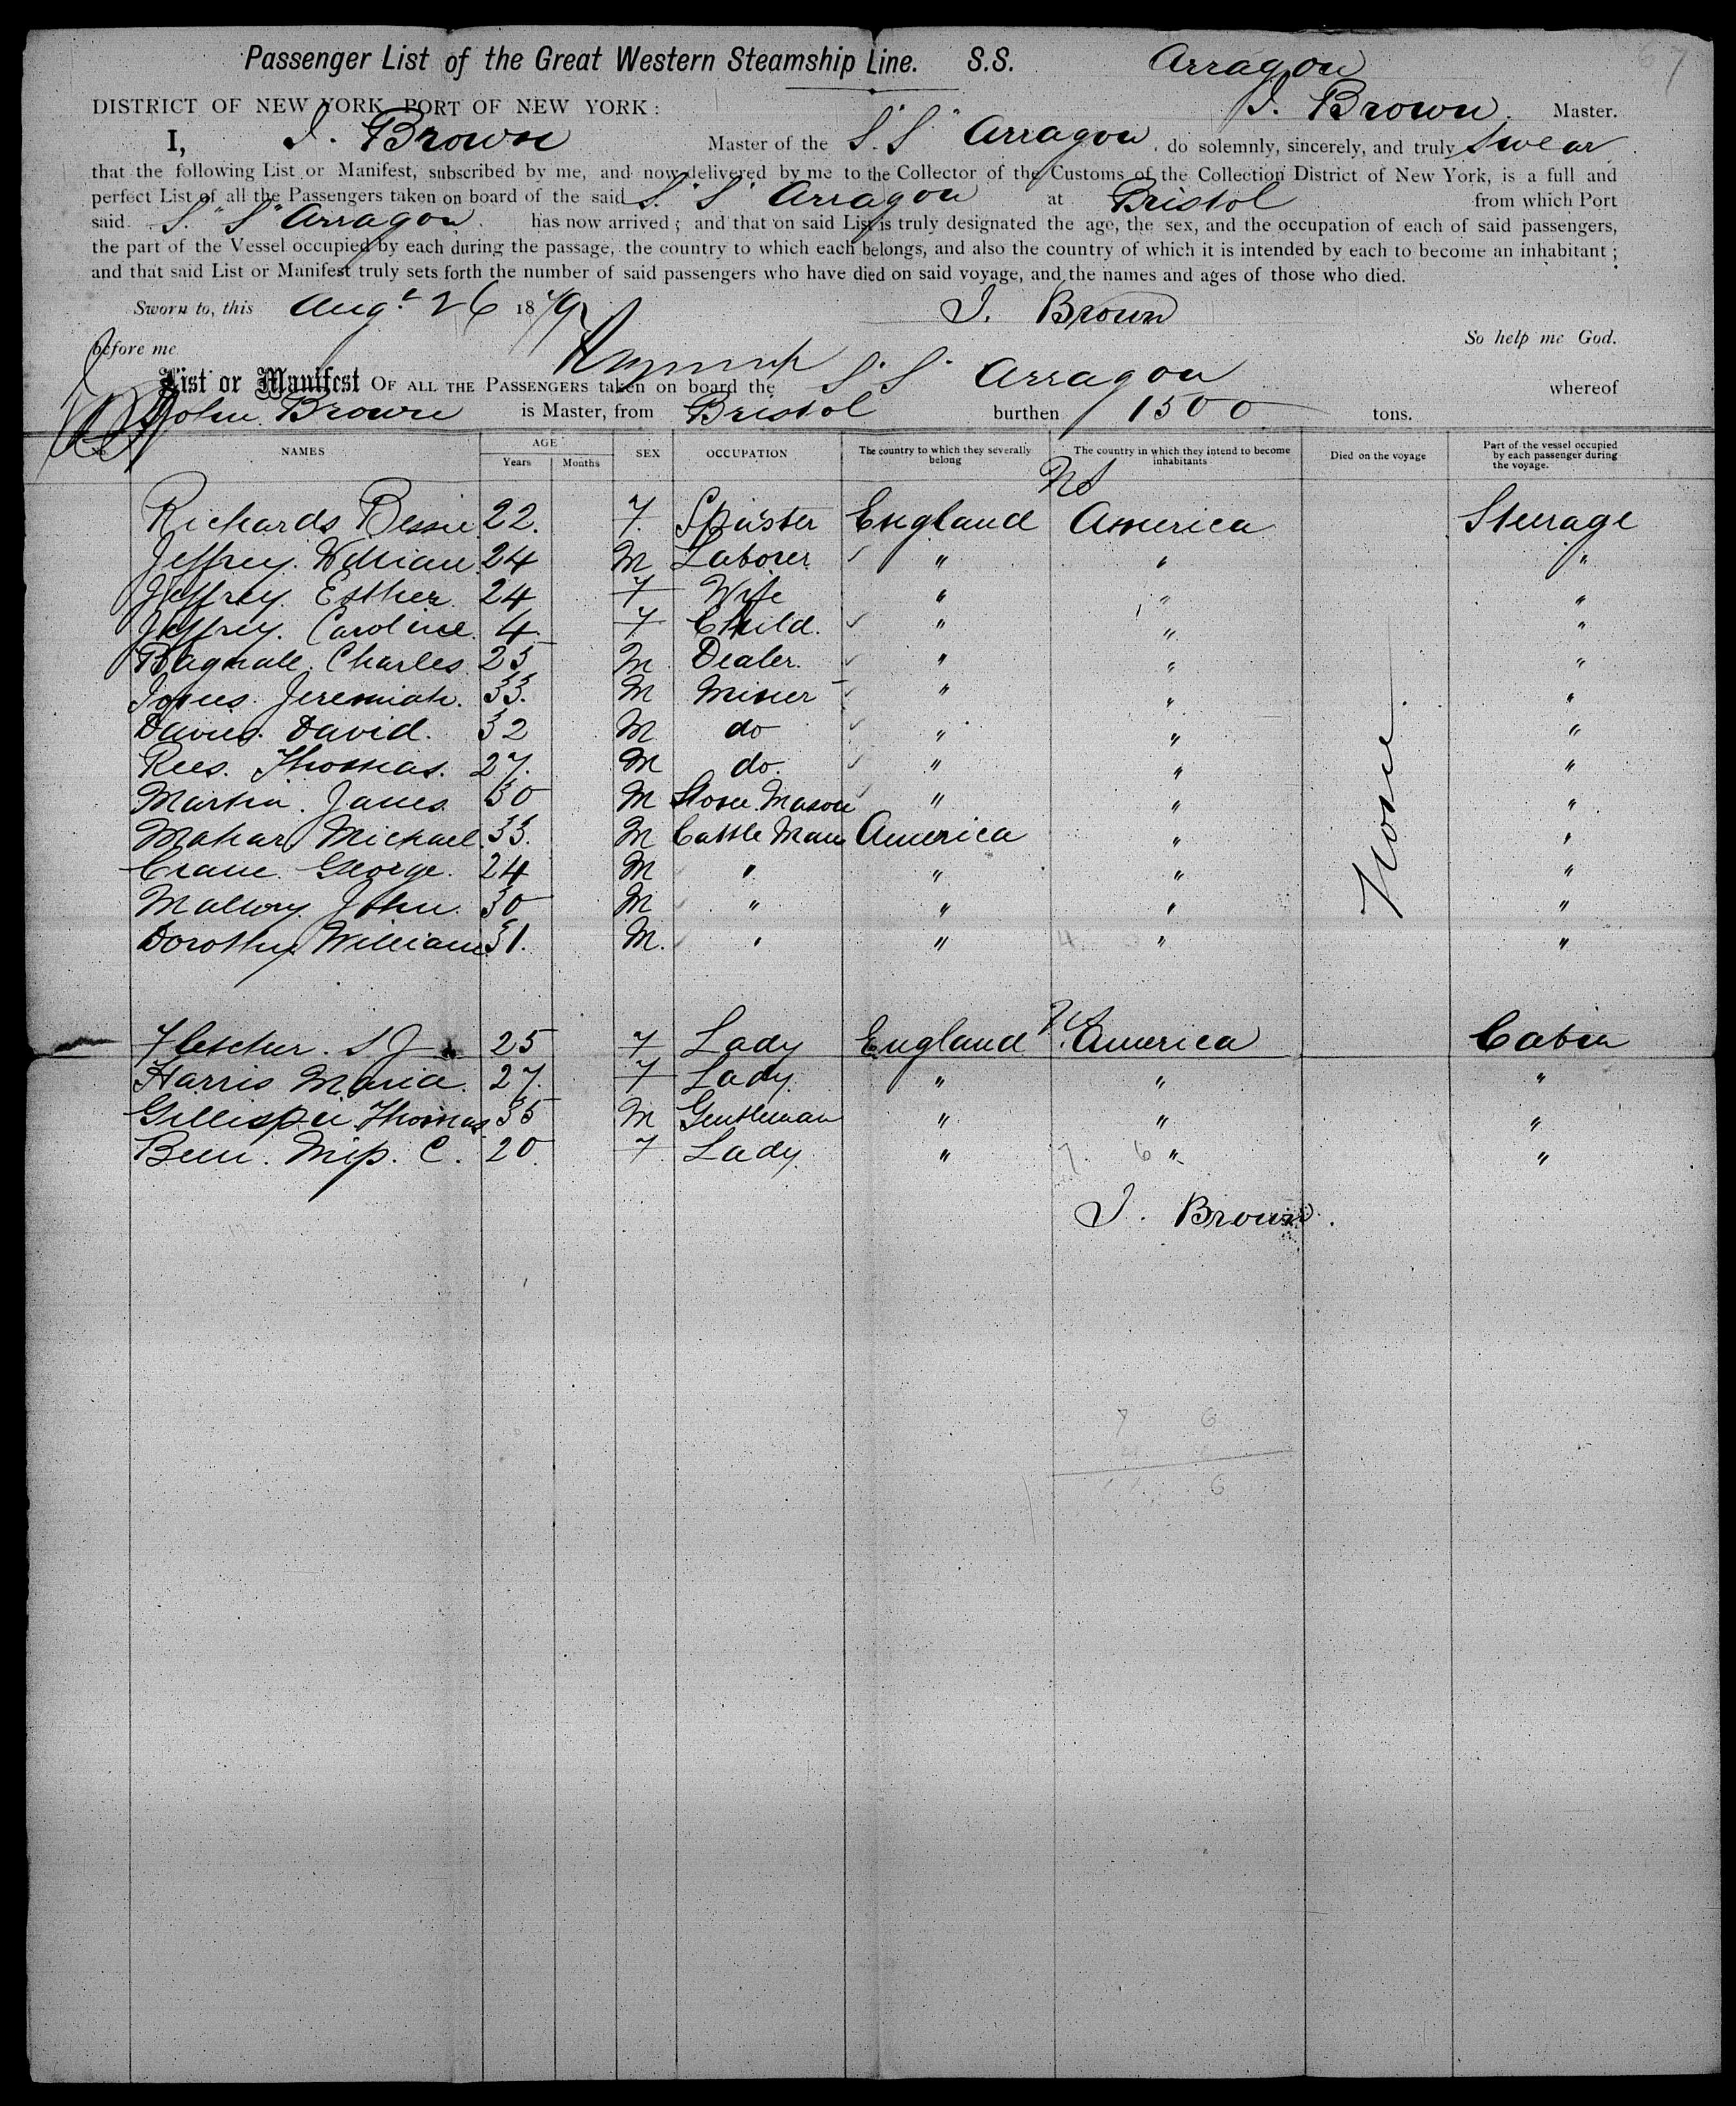 67
Passenger List of the Great Western Steamship Line. S.S. Arragon
DISTRICT OF NEW YORK, PORT OF NEW YORK: J. Brown. Master.
I, J. Brown Master of the S.S. Arragon, do solemnly, sincerely, and truly swear
that the following List or Manifest, subscribed by me, and now delivered by me to the Collector of the Customs of the Collection District of New York, is a full and
perfect List of all the Passengers taken on board of the said S.S. Arragon at Bristol from which Port
said S."S" Arragon. has now arrived; and that on said List is truly designated the age, the sex, and the occupation of each of said passengers,
the part of the Vessel occupied by each during the passage, the country to which each belongs, and also the country of which it is intended by each to become an inhabitant;
and that said List or Manifest truly sets forth the number of said passengers who have died on said voyage, and the names and ages of those who died.
Sworn to, this Augt 26 1879 J. Brown
before me So help me God.
List or Manifest OF ALL THE PASSENGERS taken on board the S.S. Arragon whereof
John Brown is Master, from Bristol burthen 1500 tons.
NAMES AGE Years Months SEX OCCUPATION The country to which they severally belong The country in which they intend to become inhabitants Died on the voyage Part of the vessel occupied by each passenger during the voyage.
Richards Bessie 22. F. Spinster England America Steerage
Jeffrey. William 24 M Laborer " " "
Jeffrey. Esther 24 F Wife " " "
Jeffrey. Caroline. 4. F Child. " " "
Bagnall. Charles 25 M Dealer. " " "
Jones. Jeremiah. 33. M Miner " " "
Davies. David. 32 M do " " "
Rees. Thomas. 27. M do. " " "
Martin. James 30 M Stone Mason " " "
Mahar Michael 33. M Cattle Man America " "
Crane. George. 24 M " " " "
Mallory. John. 30 M " " " "
Dorothy. William 31. M. " " " "
None.
Fletcher. S J 25 F Lady England America Cabin
Harris Maria. 27. F Lady. " " "
Gillispie Thomas 35 M Gentleman " " "
Miss. C. 20. F Lady. " " "
J. Brown.
7 6
6